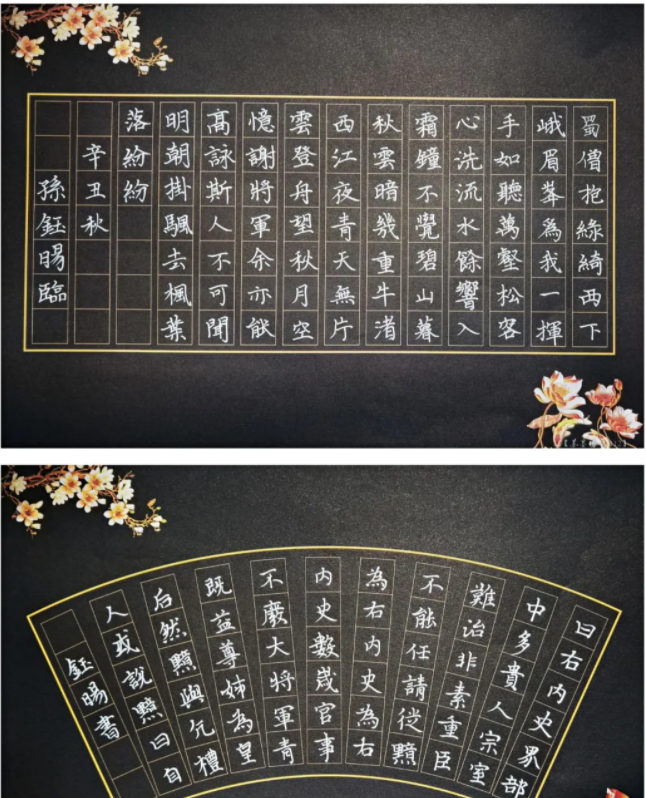 蜀僧抱綠綺西下
峨眉峯為我一揮
手如聽萬壑松客
心洗流水餘響入
霜鐘不覺碧山暮
秋雲暗幾重牛渚
西江夜青天無片
雲登舟望秋月空
憶謝將軍余亦能
髙詠斯人不可聞
明朝掛颿去楓葉
落紛紛
辛丑秋
孫鈺暘臨
曰右内史界部
中多貴人宗室
難治非素重臣
不能任請從黯
為右内史為右
内史數歲官事
不廢大將軍青
既益尊姊為皇
后然黯與亢禮
人或說黯曰自
鈺暘書